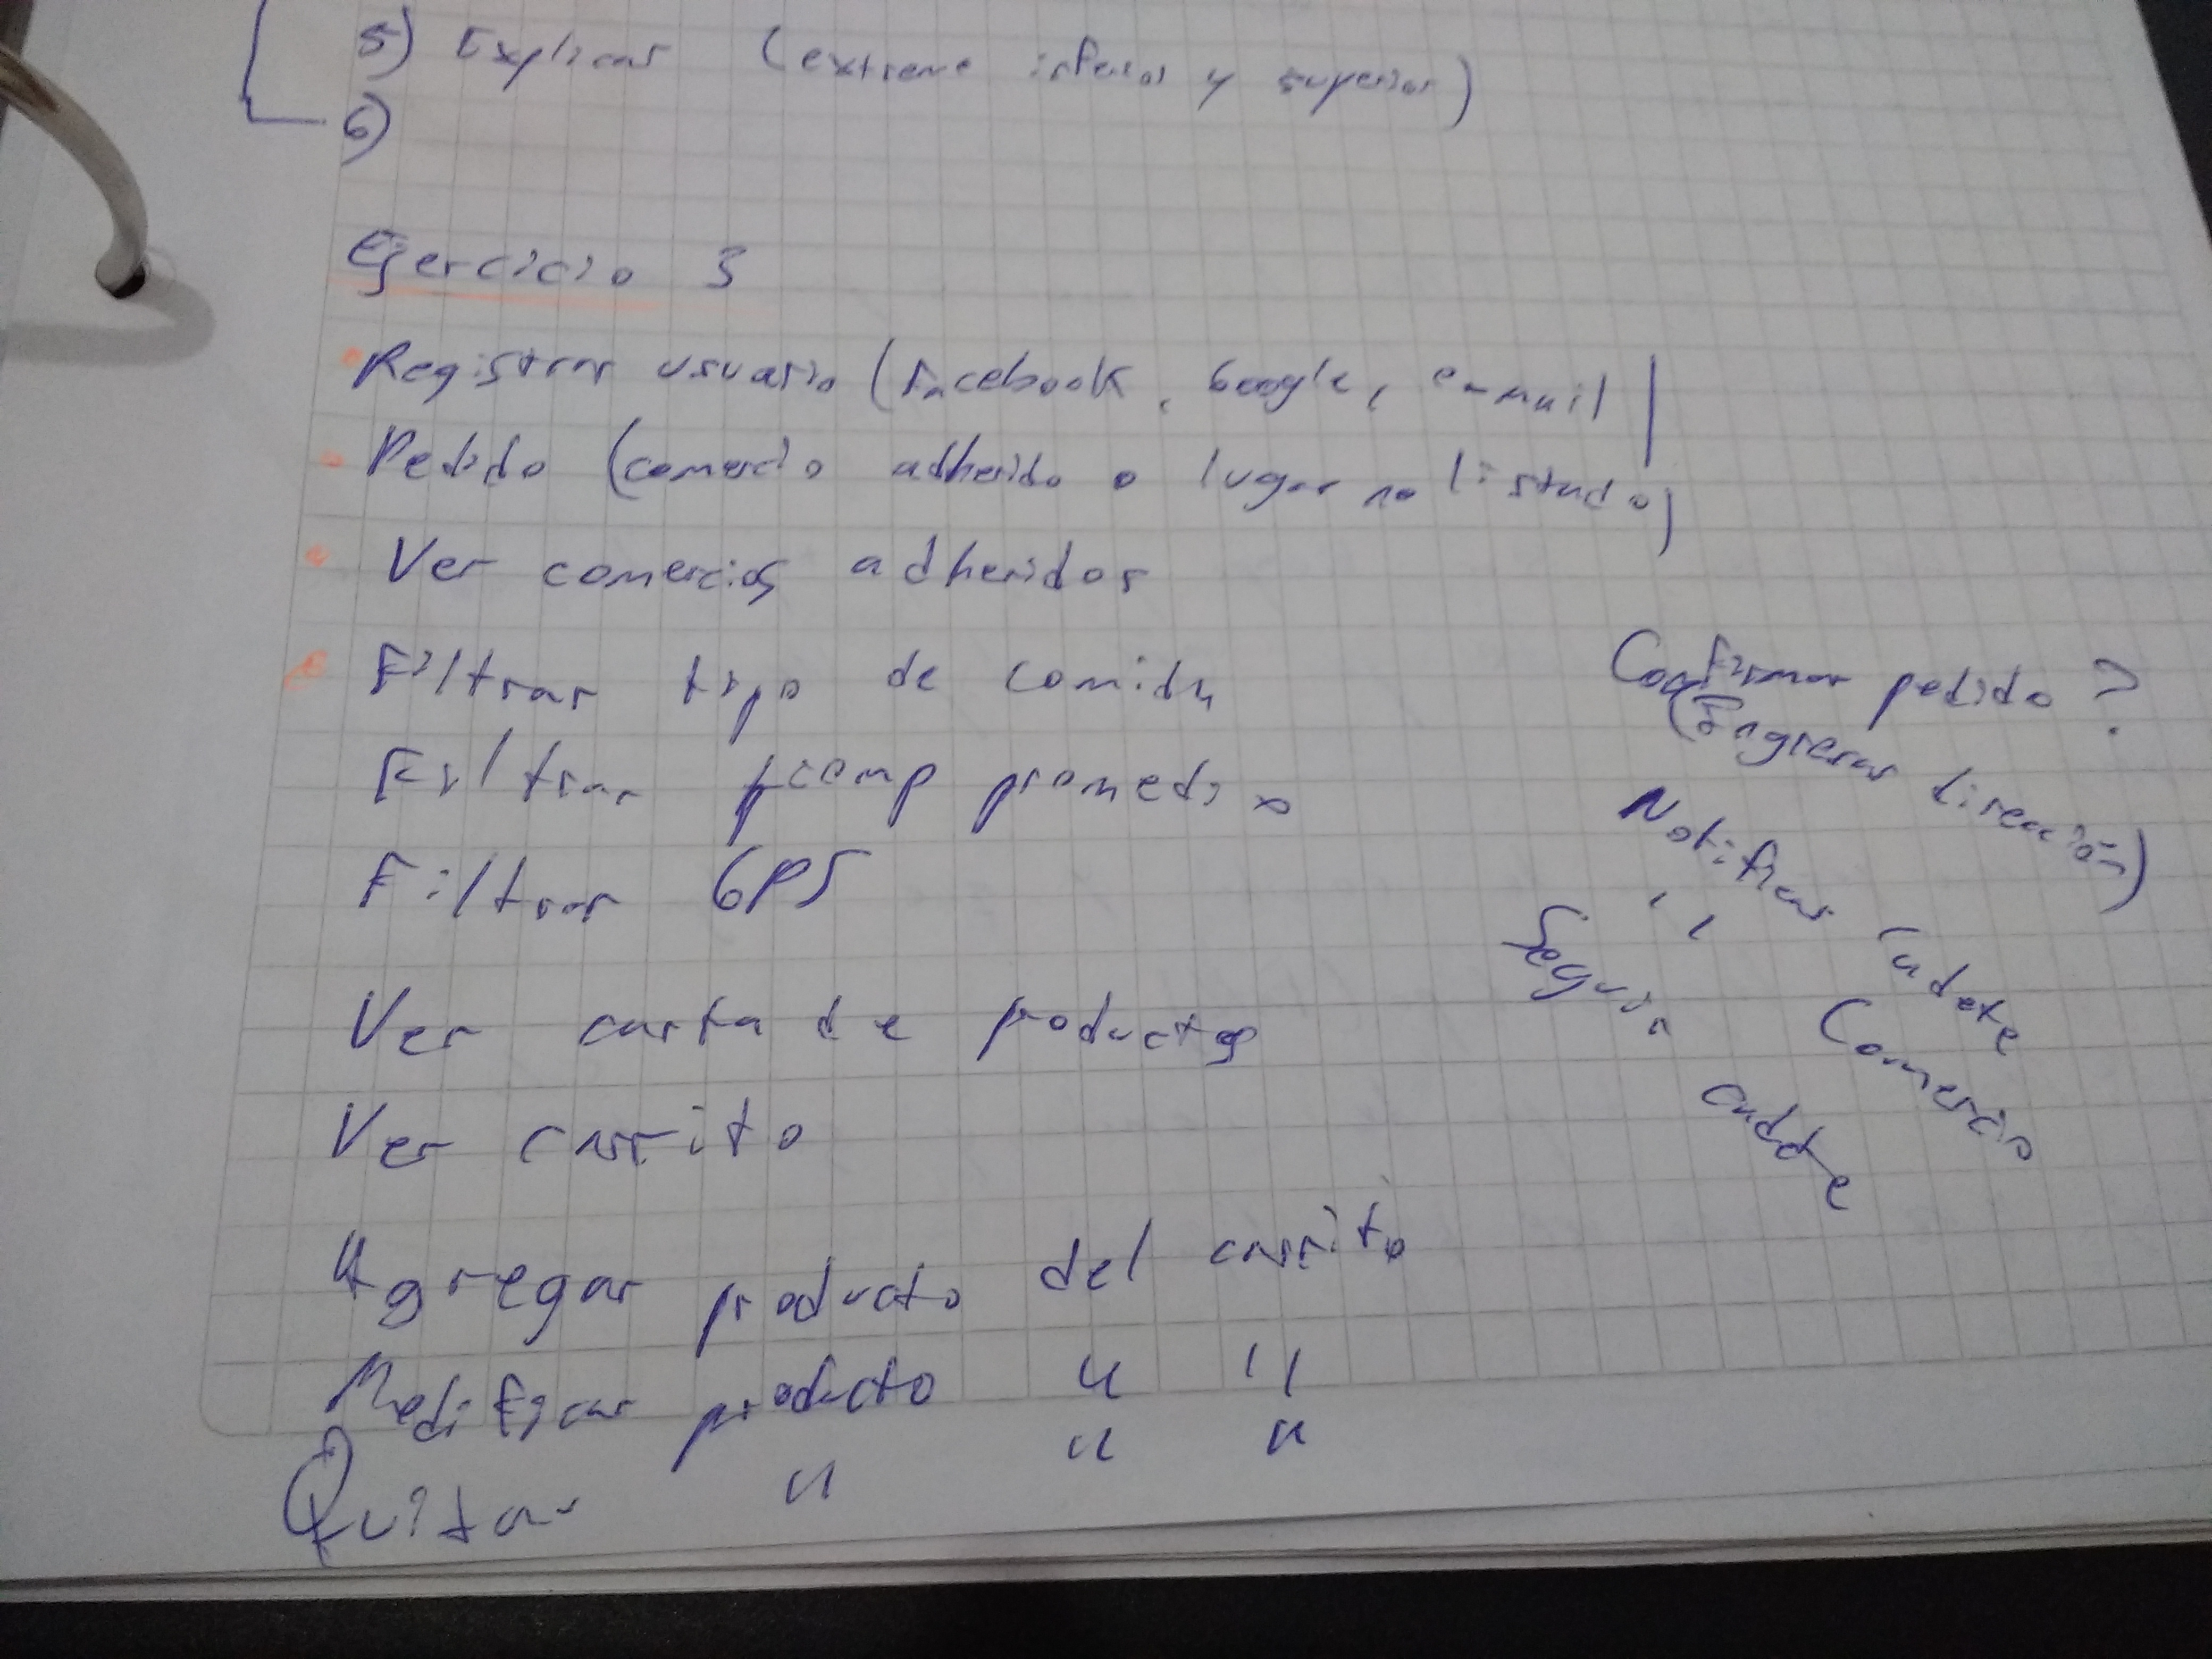 5) Explicar (extremo inferior y superior)
6)
Ejercicio 3
Registrar usuario (Facebook, Google, e-mail)
Pedido (comercio adherido o lugar no listado)
Ver comercios adheridos
Filtrar tipo de comida
Filtrar promedio
Filtrar GPS
Ver carta de productos
Ver carrito
Agregar producto del carrito
Modificar producto " "
Quitar " " "
Confirmar pedido ?
(Ingresar dirección)
Notificar cadete
" Comercio
Seguir cadete